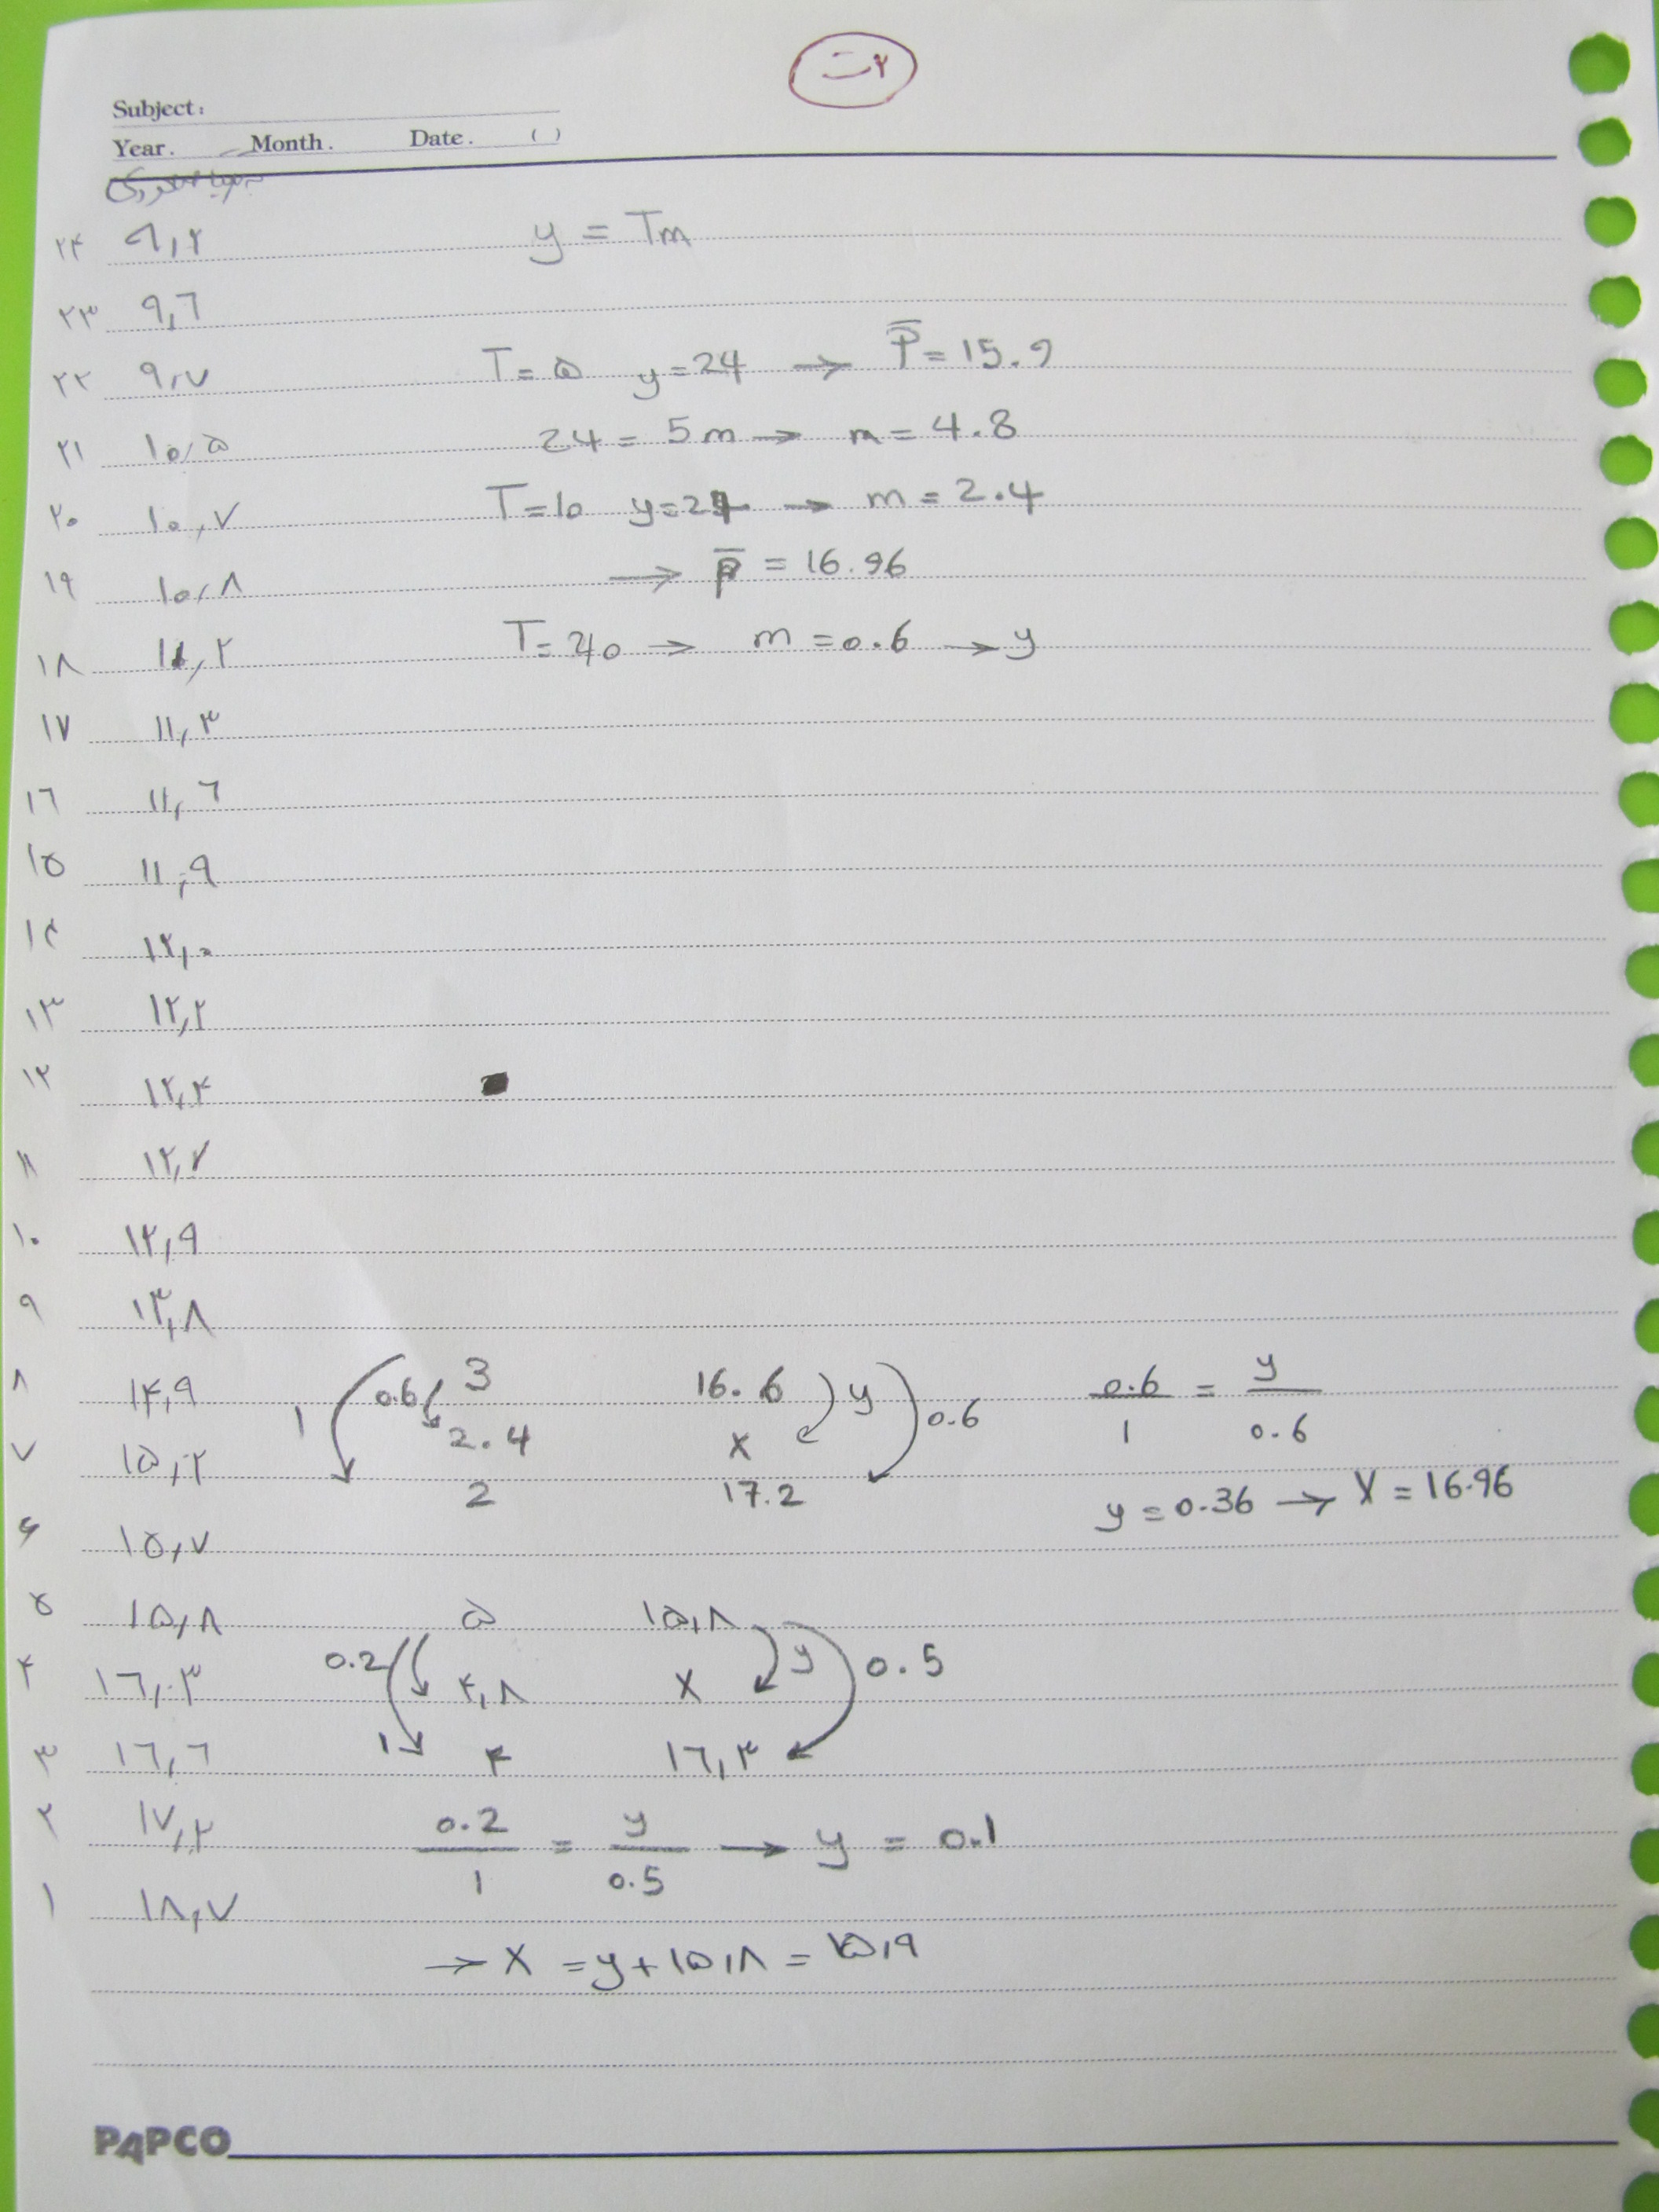 ت۲
Subject:
Year. Month. Date. ( )
۲۴ ۹,۲ y = Tm
۲۳ ۹,٦
۲۲ ۹,۷ T = ۵ y = 24 → P̄ = 15.9
۲۱ ۱۰,۵ 24 = 5m → m = 4.8
۲۰ ۱۰,۷ T = 10 y = 24 → m = 2.4
۱۹ ۱۰,۸ → P̄ = 16.96
۱۸ ۱۱,۲ T = 40 → m = 0.6 → y
۱۷ ۱۱,۳
۱٦ ۱۱,٦
۱۵ ۱۱,۹
۱۴ ۱۲,۰
۱۳ ۱۲,۲
۱۲ ۱۲,۴
۱۱ ۱۲,۷
۱۰ ۱۲,۹
۹ ۱۳,۸
۸ ۱۴,۹ 1 0.6 3 16.6 y 0.6 0.6/1 = y/0.6
۷ ۱۵,۲ 2.4 X
2 17.2 y = 0.36 → X = 16.96
۶ ۱۵,۷
۵ ۱۵,۸ ۵ ۱۵,۸
۴ ۱٦,۳ 0.2 ۴,۸ X y 0.5
۳ ۱٦,٦ 1 ۴ ۱٦,۳
۲ ۱۷,۲ 0.2/1 = y/0.5 → y = 0.1
۱ ۱۸,۷
→ X = y + ۱۵,۸ = ۱۵,۹
PAPCO